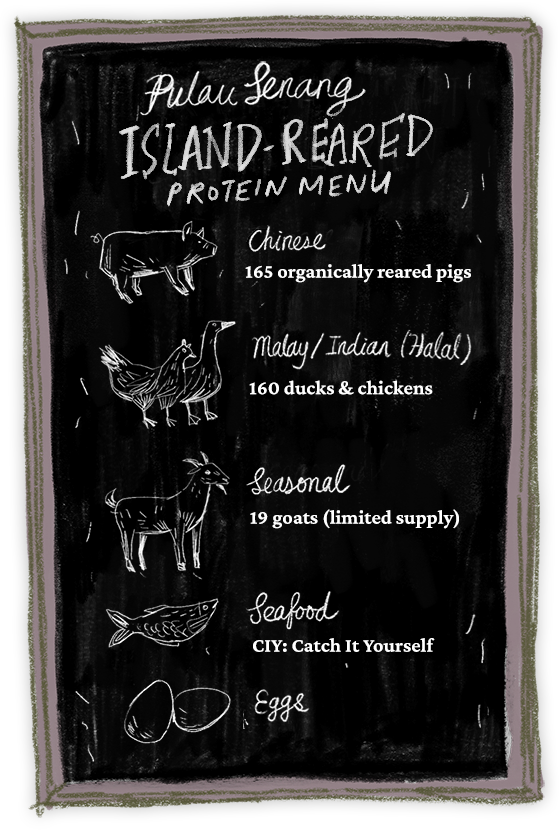 Pulau Senang
ISLAND-REARED
PROTEIN MENU
Chinese
165 organically reared pigs
Malay/Indian (Halal)
160 ducks & chickens
Seasonal
19 goats (limited supply)
Seafood
CIY: Catch It Yourself
Eggs